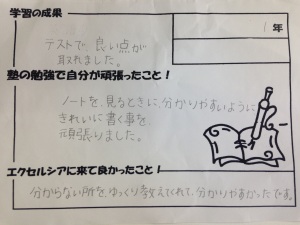 学習の成果
1年
テストで、良い点が
取れました。
塾の勉強で自分が頑張ったこと！
ノートを、見るときに、分かりやすいように
きれいに書く事を、
頑張りました。
エクセルシアに来て良かったこと！
分からない所を、ゆっくり教えてくれて、分かりやすかったです。